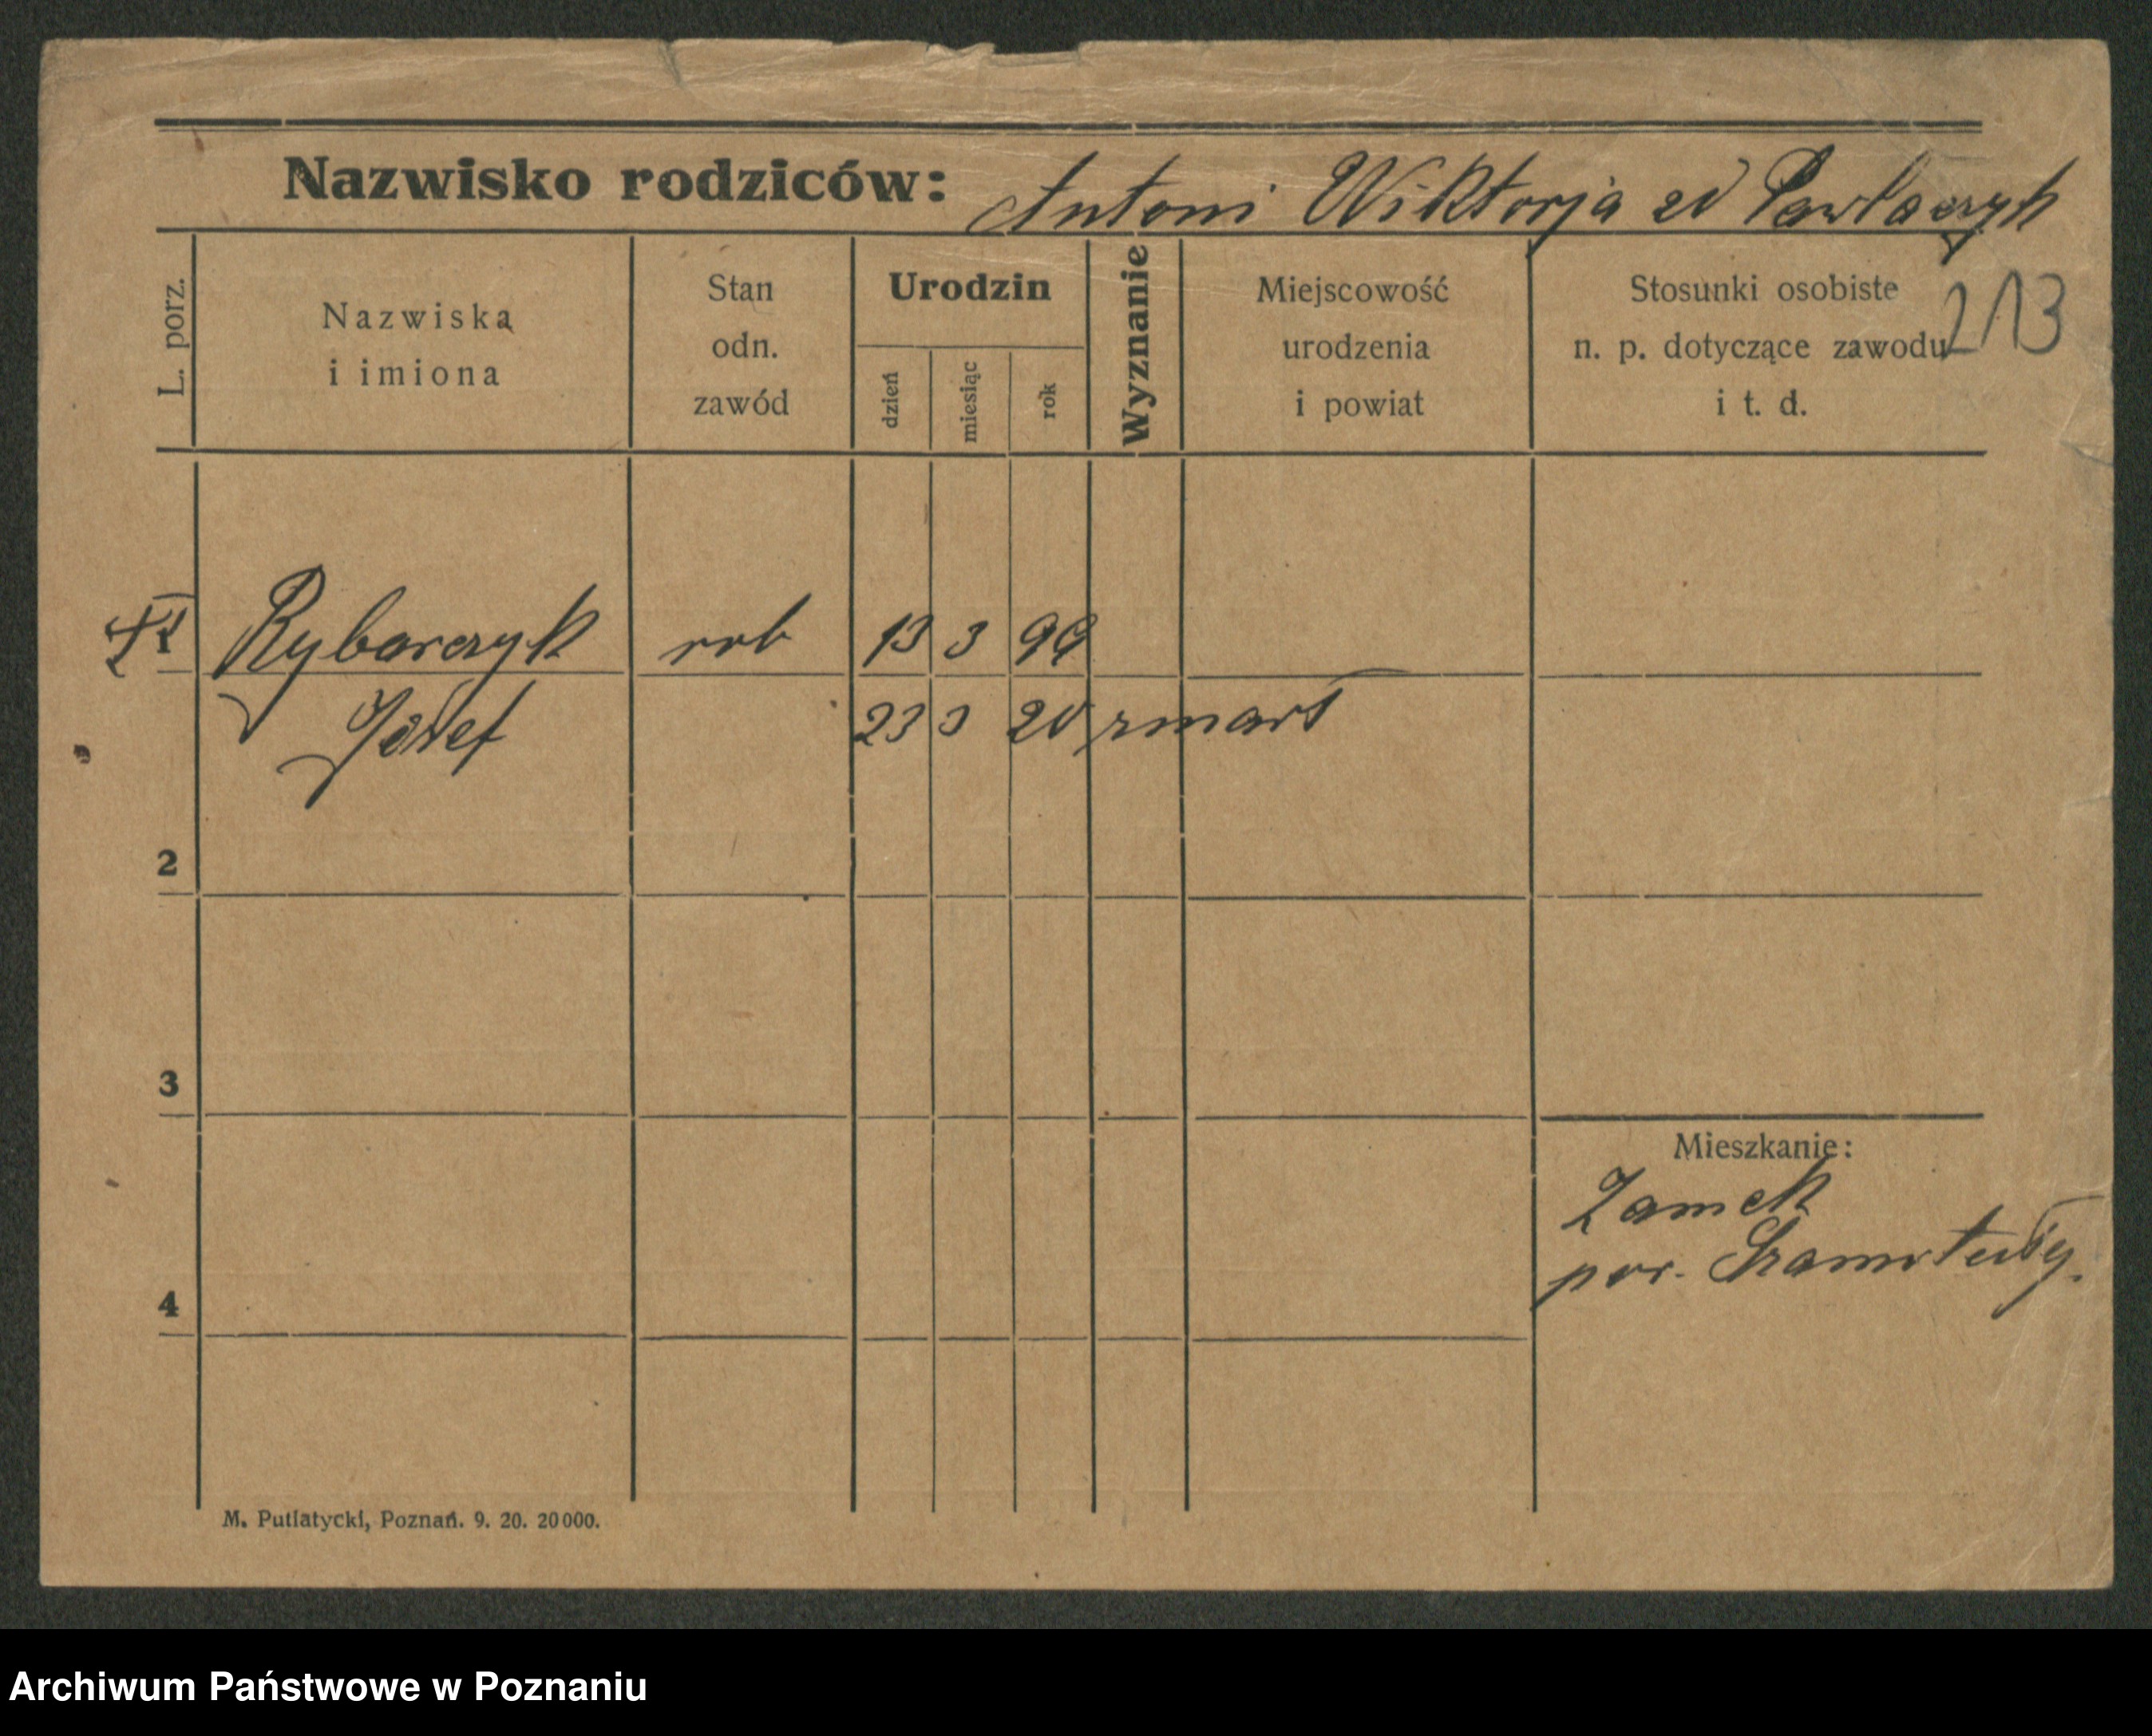 Nazwisko rodziców: Antoni Wiktorja zd Pawlaczyk
213
L. porz.
Nazwiska
i imiona
Stan
odn.
zawód
Urodzin
dzień
miesiąc
rok
Wyznanie
Miejscowość
urodzenia
i powiat
Stosunki osobiste
n. p. dotyczące zawodu
i t. d.
Rybarczyk rob 13 3 99
Józef 23 3 20 zmarł
2
3
Mieszkanie:
Zamek
pow. Szamotuły.
4
M. Putiatycki, Poznań. 9. 20. 20000.
Archiwum Państwowe w Poznaniu